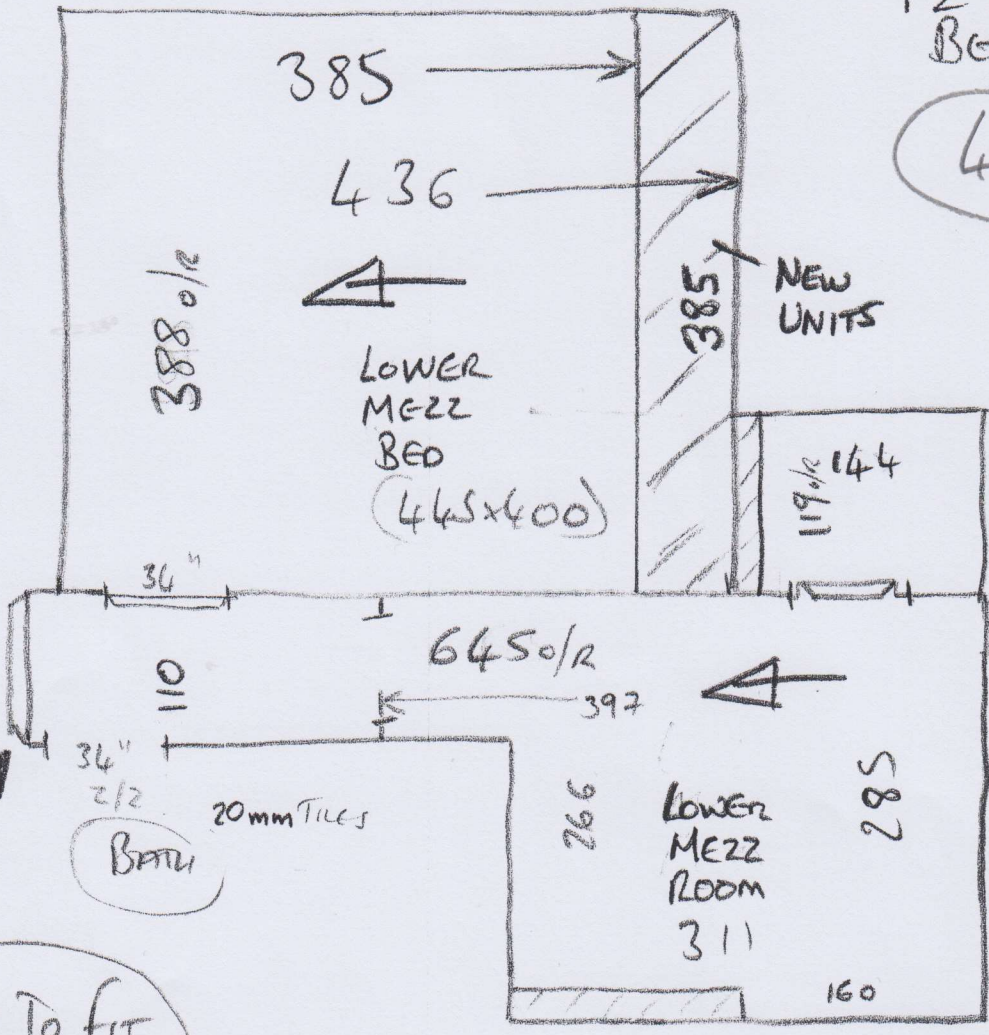 BE
385
436
4
388 o/R
385
NEW
UNITS
LOWER
MEZZ
BED
(445x400)
119 o/R
144
34"
645 o/R
110
397
34"
2/2
BATH
20mm TILES
266
LOWER
MEZZ
ROOM
311
285
160
To FIT